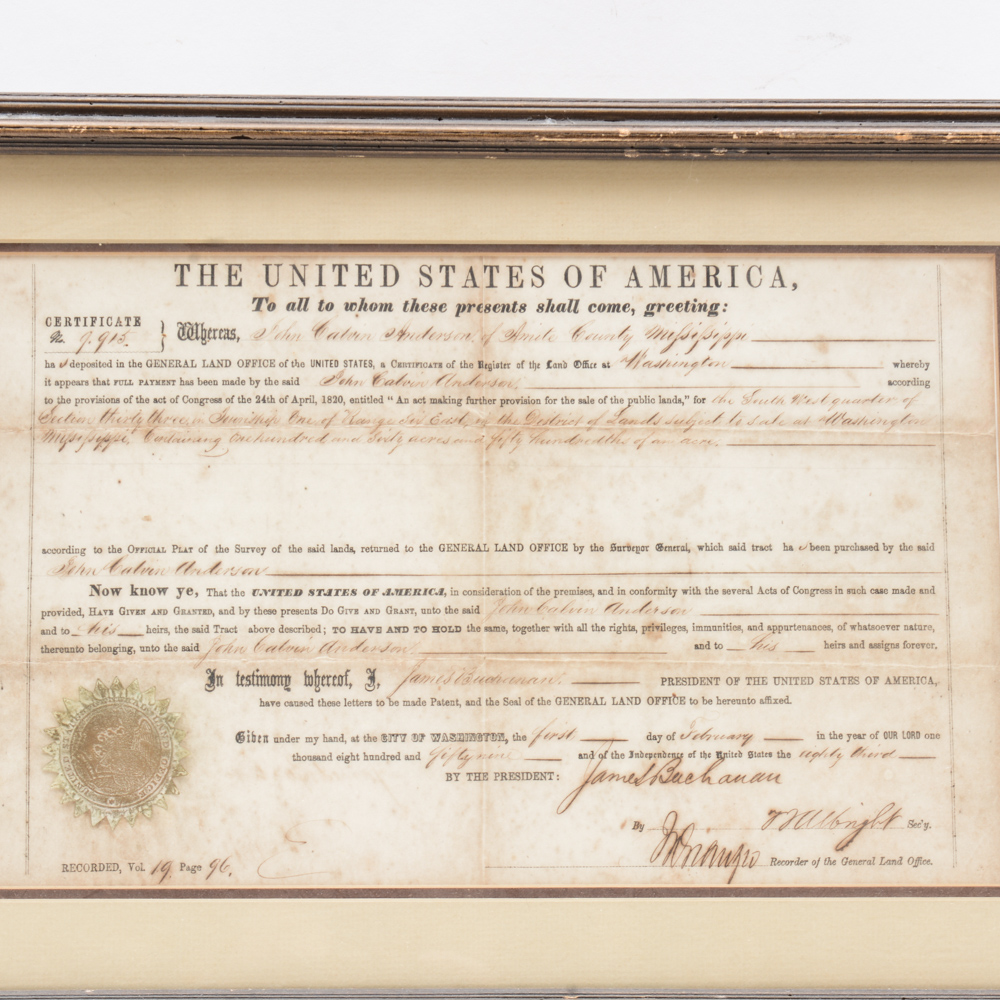 THE UNITED STATES OF AMERICA,
To all to whom these presents shall come, greeting:
CERTIFICATE
No. 9.915. } Whereas, John Calvin Anderson, of Amite County Mississippi
ha s deposited in the GENERAL LAND OFFICE of the UNITED STATES, a CERTIFICATE of the Register of the Land Office at Washington whereby
it appears that FULL PAYMENT has been made by the said John Calvin Anderson, according
to the provisions of the act of Congress of the 24th of April, 1820, entitled "An act making further provision for the sale of the public lands," for the South West quarter of
Section thirty three, in Township One, of Range Six East, in the District of Lands subject to sale at Washington
Mississippi, Containing One hundred and Sixty acres and fifty hundredths of an acre,
according to the OFFICIAL PLAT of the Survey of the said lands, returned to the GENERAL LAND OFFICE by the Surveyor General, which said tract ha s been purchased by the said
John Calvin Anderson
Now know ye, That the UNITED STATES OF AMERICA, in consideration of the premises, and in conformity with the several Acts of Congress in such case made and
provided, HAVE GIVEN AND GRANTED, and by these presents DO GIVE AND GRANT, unto the said John Calvin Anderson
and to his heirs, the said Tract above described; TO HAVE AND TO HOLD the same, together with all the rights, privileges, immunities, and appurtenances, of whatsoever nature,
thereunto belonging, unto the said John Calvin Anderson and to his heirs and assigns forever.
In testimony whereof, I, James Buchanan, PRESIDENT OF THE UNITED STATES OF AMERICA,
have caused these letters to be made Patent, and the Seal of the GENERAL LAND OFFICE to be hereunto affixed.
Given under my hand, at the CITY OF WASHINGTON, the first day of February in the year of OUR LORD one
thousand eight hundred and fifty nine and of the Independence of the United States the eighty third
BY THE PRESIDENT: James Buchanan
By Sec'y.
Recorder of the General Land Office.
RECORDED, Vol. 19. Page 96.